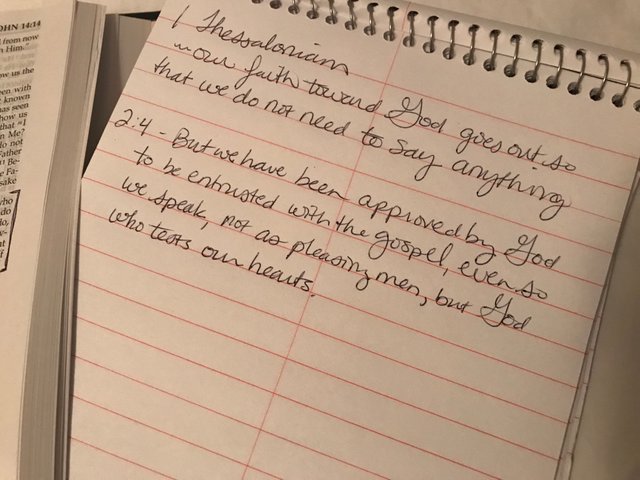 OHN 14:14
from now
Him."
w us the
en with
known
as seen
how us
that "I
Me?
do not
Father
Be-
Fa-
sake
who
do
1 Thessalonians
our faith toward God goes out so
that we do not need to say anything
2:4 - But we have been approved by God
to be entrusted with the gospel, even so
we speak, not as pleasing men, but God
who tests our hearts.